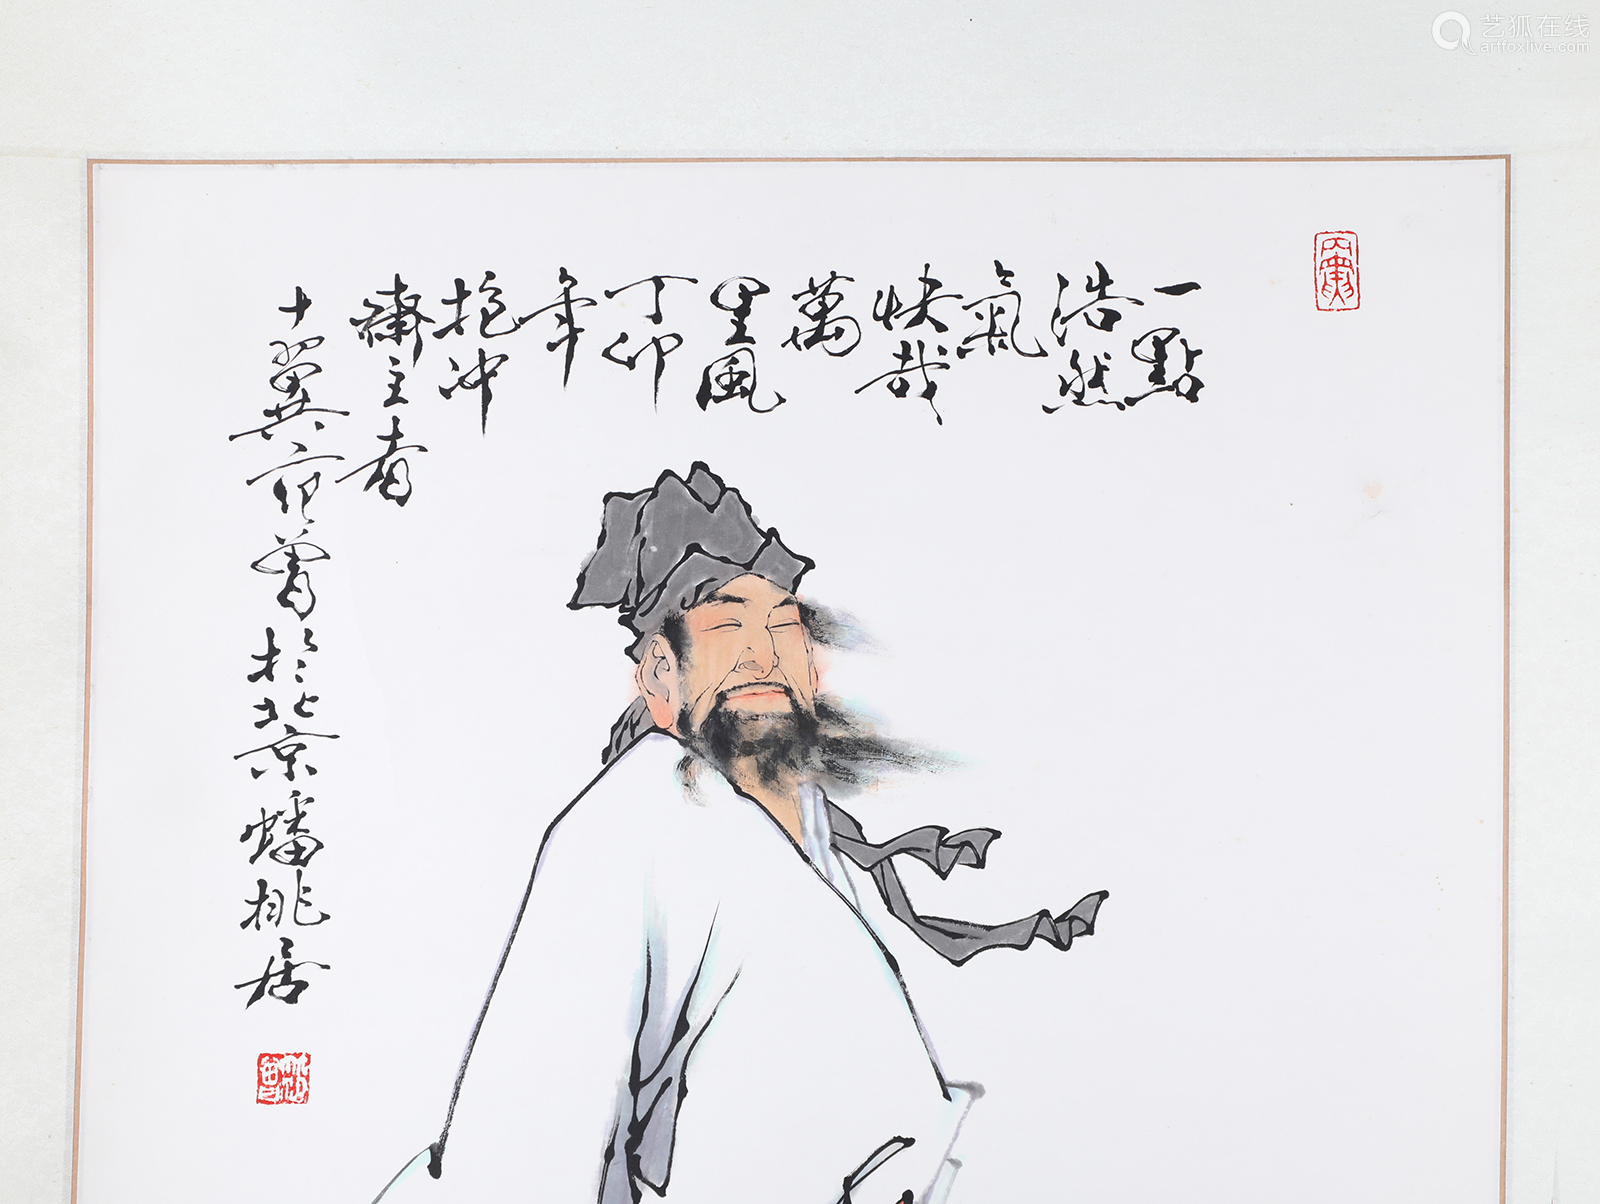 一點
浩然
氣
快哉
萬
里風
丁卯
年
抱沖
齋主者
十翼范曾於北京蟠桃居
艺狐在线
artfoxlive.com